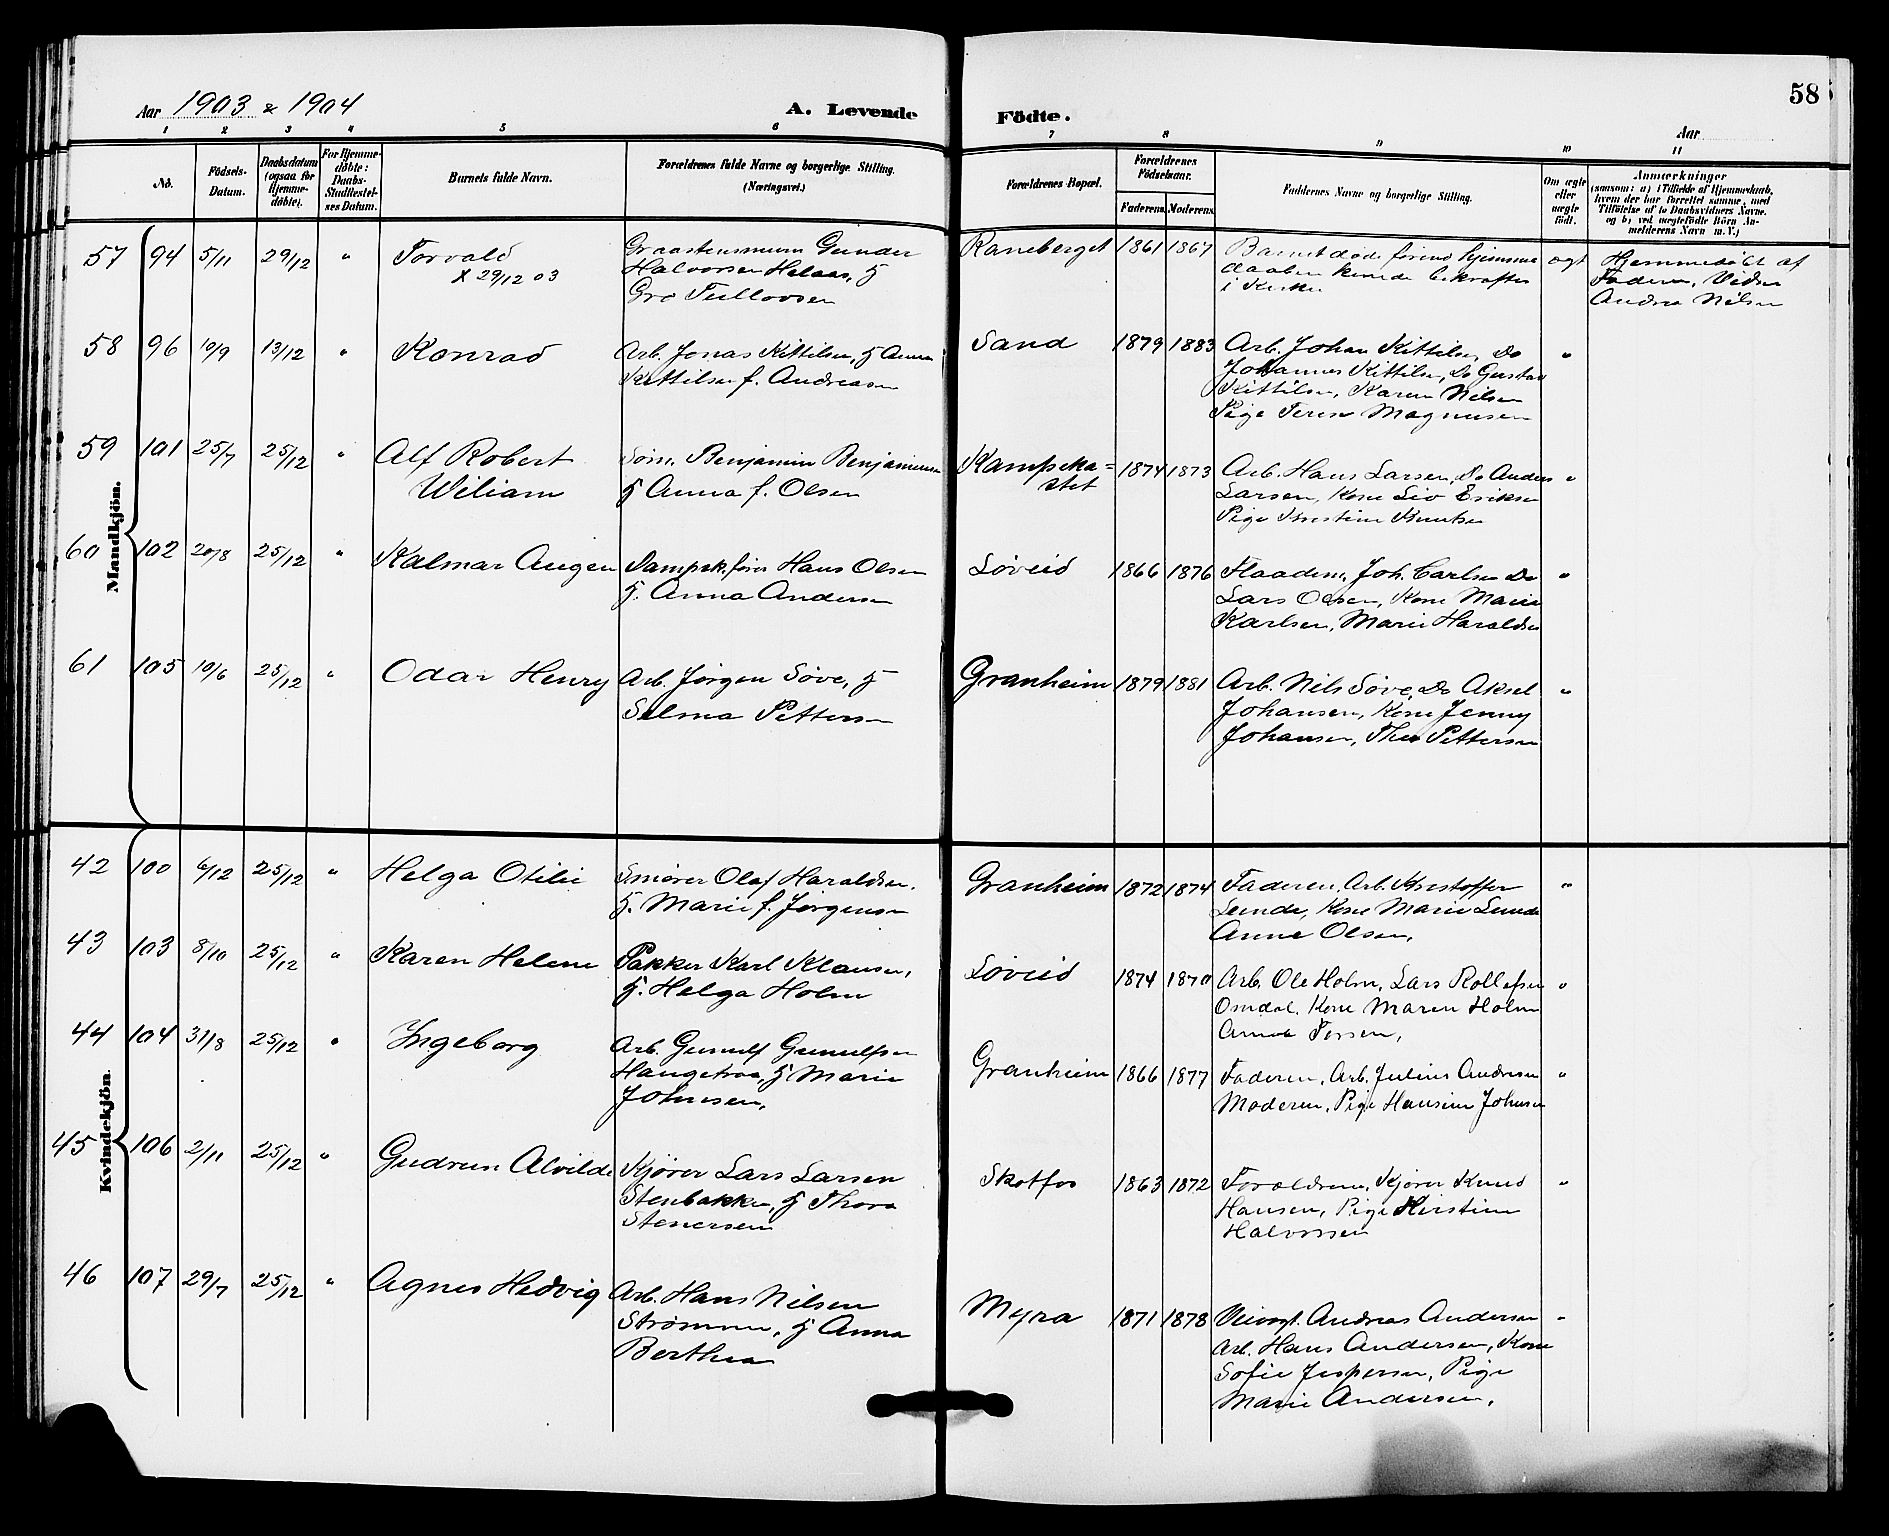 Aar 1903 & 1904
A. Levende
Födte.
58
Aar
1 2 3 4 5 6
7 8 9 10 11
No.
Födsels-
Datum.
Daabsdatum
(ogsaa for
Hjemme-
döbte).
For Hjemme-
döbte:
Daabs-
Stadfestel-
ses Datum.
Barnets fulde Navn.
Forældrenes fulde Navne og borgerlige Stilling.
(Næringsvei.)
Forældrenes Bopæl.
Forældrenes
Födselsaar.
Faderens Moderens
Faddernes Navne og borgerlige Stilling.
Om ægte
eller
uægte
födt.
Anmærkninger
(saasom: a) i Tilfælde af Hjemmedaab,
hvem der har forrettet samme, med
Tilföielse af to Daabsvidners Navne.
og b) ved uægtefödte Börn An-
melderens Navn m. V.)
Mandkjön.
57 94 5/11 29/12 " Torvald
x 29/12 03
Graastensmurer Gunder
Halvorsen Helaas, H
Gro Tellovsen
Raneberget 1861 1867
Barnet døde førend hjemme
daaben kunde bekræftes
i Kirke
ægt
Hjemmedøbt af
Faderen, Vidner
Andrea Nilsen
58 96 10/9 13/12 " Konrad
Arb. Jonas Kittilsen, H Anna
Kittilsen f. Andreasen
Sand 1879 1883
Arb. Johan Kittilsen, Do
Johannes Kittilsen, Do Gustav
Kittilsen, Karen Nilsen
Pige Terese Magnusen
"
59 101 25/7 25/12 " Alf Robert
Wiliam
Søm. Benjamin Benjaminsen
H Anna f. Olsen
Kampeka=
stet
1874 1873
Arb. Hans Larsen, Do Anders
Larsen, Kone Liv Eriksen
Pige Kristine Knutsen
"
60 102 20/8 25/12 " Kalmar Augen
Dampsk.fører Hans Olsen
H. Anna Andersen
Løveid 1866 1876
Flaadem. Joh. Carlsen Do
Lars Olsen, Kone Marie
Karlsen, Marie Haraldsen
"
61 105 10/6 25/12 " Odar Henry
Arb. Jørgen Søve, H
Selma Pettersen
Granheim 1879 1881
Arb. Nils Søve, Do Aksel
Johansen, Kone Jenny
Johansen, Thea Pettersen
"
Kvindekjön.
42 100 6/12 25/12 " Helga Otilie
Smører Olaf Haraldsen.
H. Marie f. Jørgensen
Granheim 1872 1874
Faderen, Arb. Kristoffer
Lunde, Kone Marie Lunde
Anne Olsen,
"
43 103 8/10 25/12 " Karen Helene
Pakker Karl Klausen,
H. Helga Holm
Løveid 1874 1870
Arb. Ole Holm, Lars Rollefsen
Omdal. Kone Maren Holm
Anna Torsen,
"
44 104 31/8 25/12 " Ingeborg
Arb. Gunulf Gunulfsen
Haugetraa, H Marie
Johnsen,
Granheim 1866 1877
Faderen, Arb. Julius Andersen
Moderen, Pige Hansine Johnsen
"
45 106 2/11 25/12 " Gudrun Alvilde
Kjører Lars Larsen
Stenbakken, H Thora
Stenersen
Skotfos 1863 1872
Forældrene, Kjører Knud
Hansen, Pige Kirstine
Halvorsen
"
46 107 29/7 25/12 " Agnes Hedvig
Arb. Hans Nilsen
Strømmen, H Anna
Berthea
Myra 1871 1878
Veivogt. Andreas Andersen
Arb. Hans Andersen, Kone
Sofie Jespersen, Pige
Marie Andersen,
"